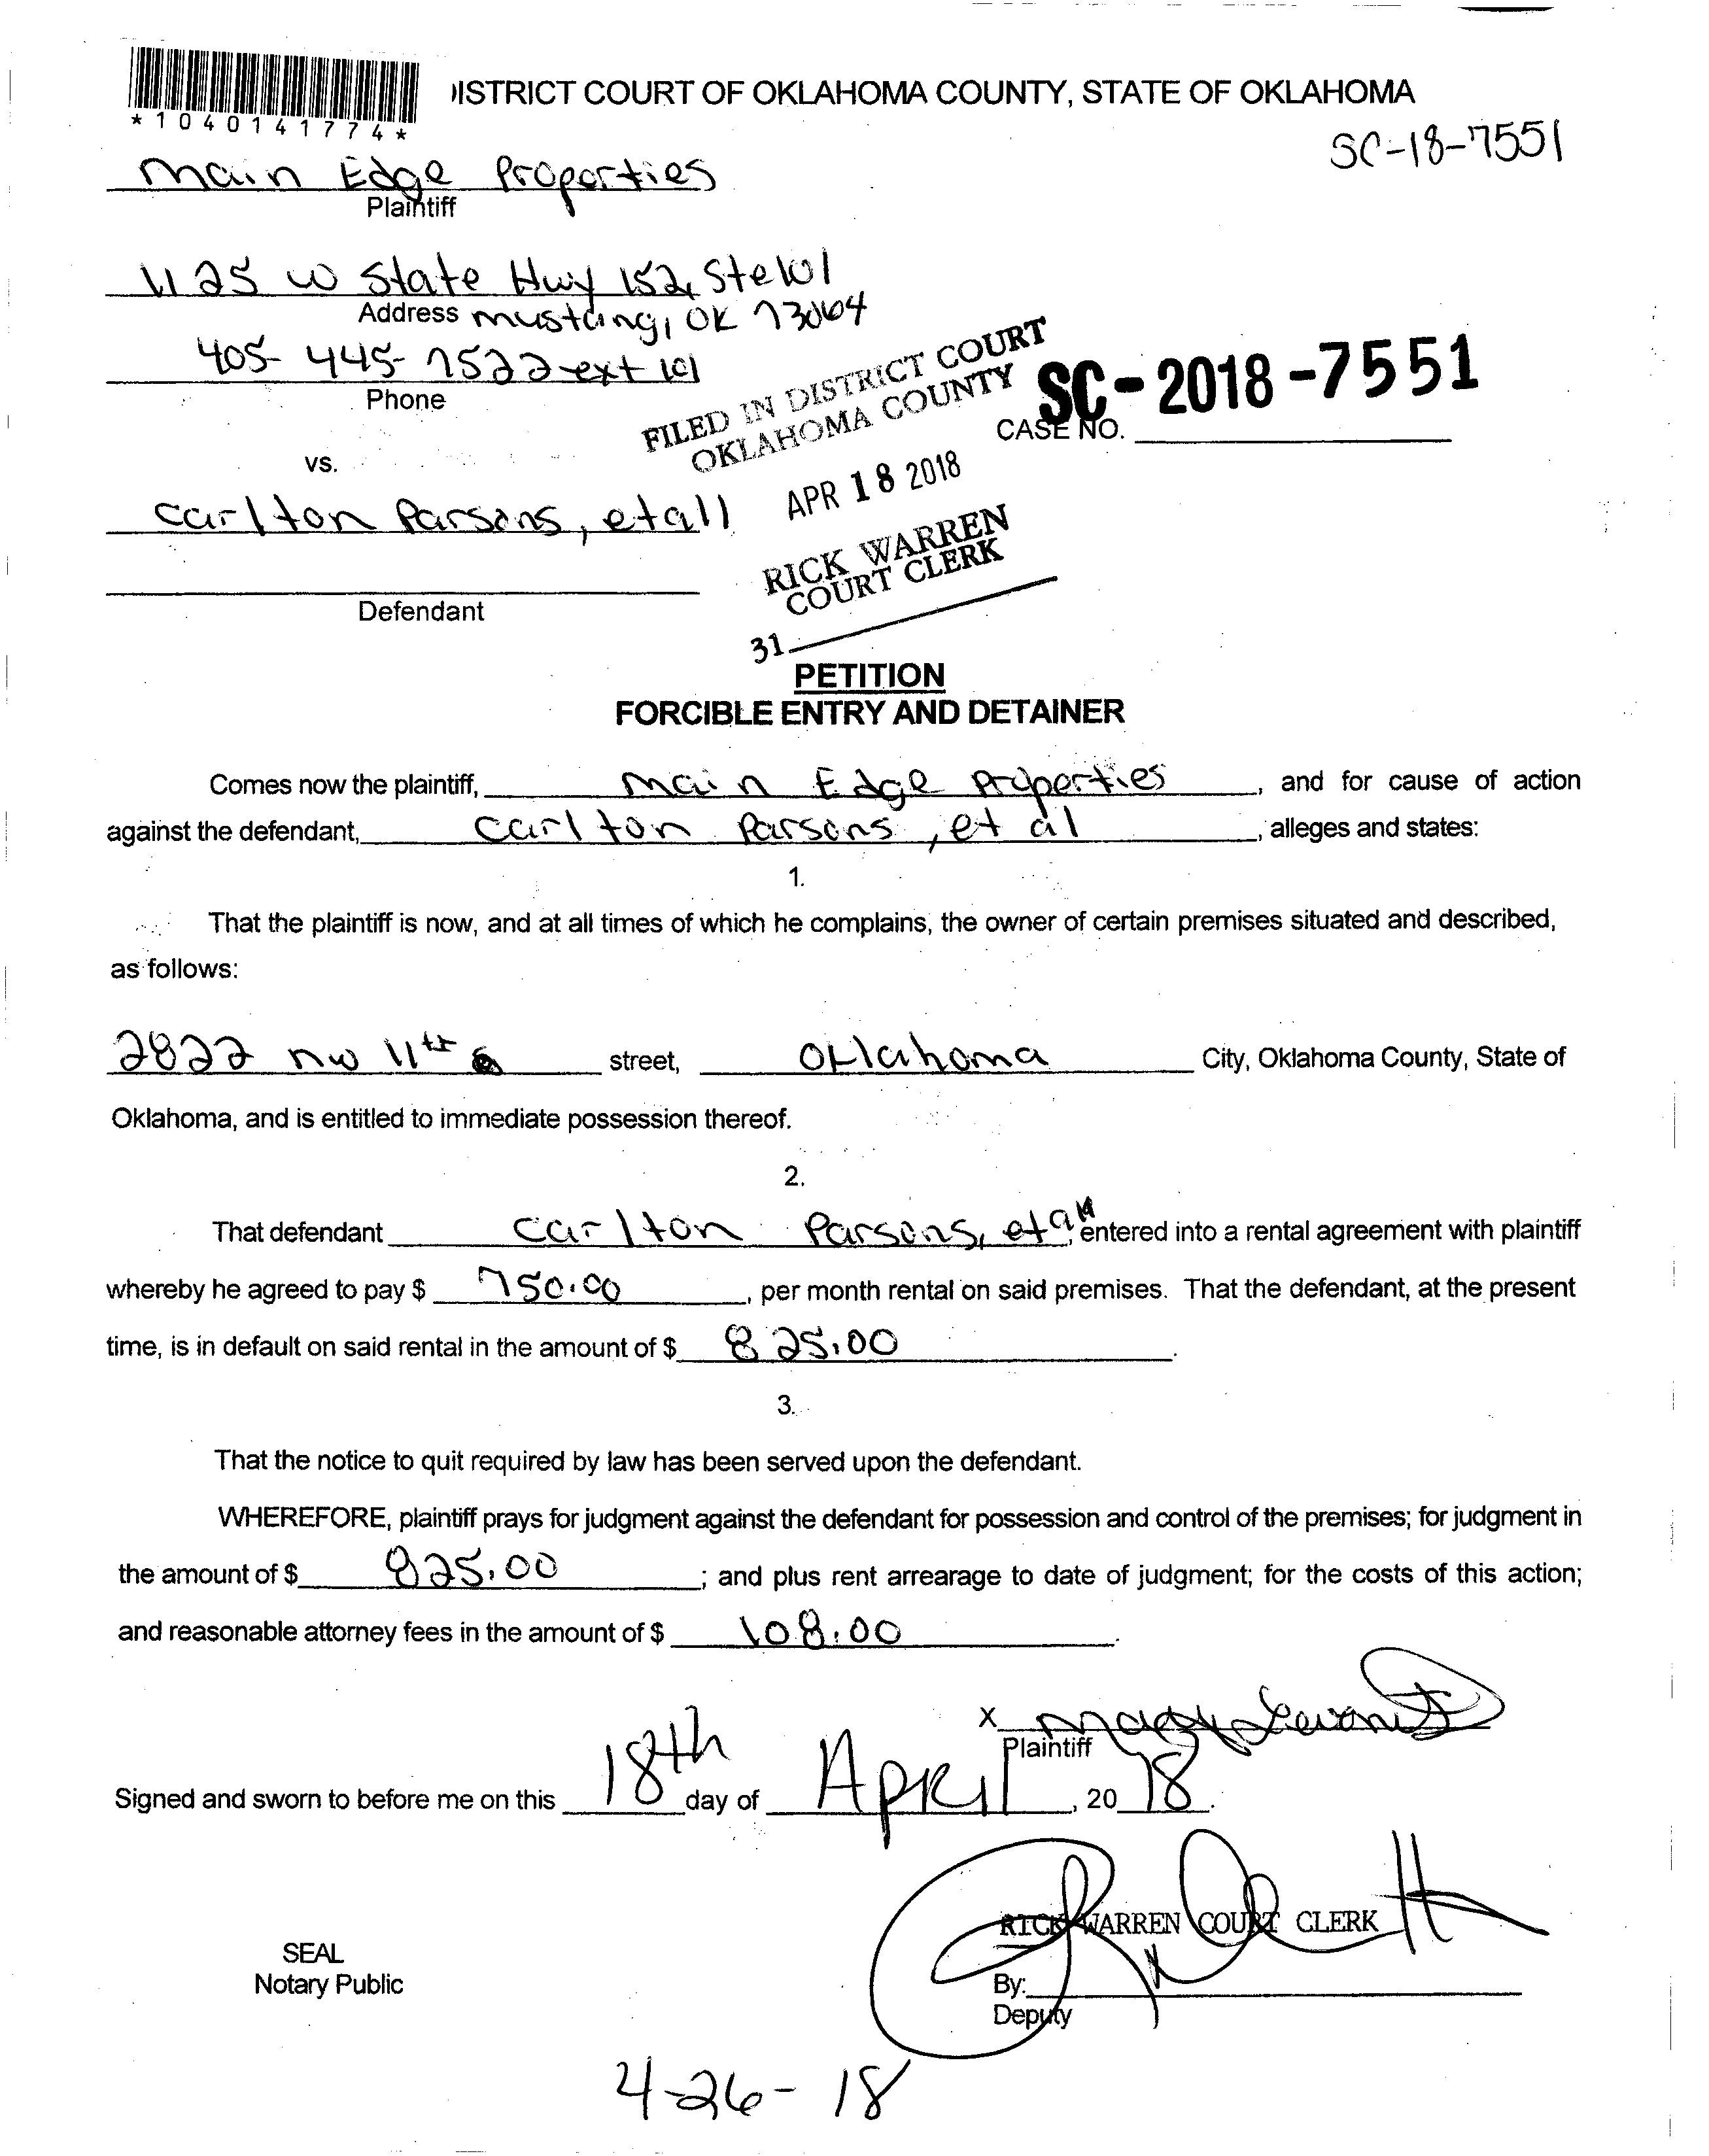 ISTRICT COURT OF OKLAHOMA COUNTY, STATE OF OKLAHOMA
*1040141774*
SC-18-7551
Main Edge Properties
Plaintiff
1125 W State Hwy 152, Ste 101
Address Mustang, OK 73064
405-445-7522 ext 101
Phone
FILED IN DISTRICT COURT
OKLAHOMA COUNTY
SC-2018-7551
CASE NO.
vs.
APR 18 2018
Carlton Parsons, etall
RICK WARREN
COURT CLERK
Defendant
31
PETITION
FORCIBLE ENTRY AND DETAINER
Comes now the plaintiff, Main Edge Properties, and for cause of action
against the defendant, Carlton Parsons, et al, alleges and states:
1.
That the plaintiff is now, and at all times of which he complains, the owner of certain premises situated and described,
as follows:
2822 NW 11th street, Oklahoma City, Oklahoma County, State of
Oklahoma, and is entitled to immediate possession thereof.
2.
That defendant Carlton Parsons, etal, entered into a rental agreement with plaintiff
whereby he agreed to pay $ 750.00, per month rental on said premises. That the defendant, at the present
time, is in default on said rental in the amount of $ 825.00.
3.
That the notice to quit required by law has been served upon the defendant.
WHEREFORE, plaintiff prays for judgment against the defendant for possession and control of the premises; for judgment in
the amount of $ 825.00; and plus rent arrearage to date of judgment; for the costs of this action;
and reasonable attorney fees in the amount of $ 108.00.
X
Plaintiff
Signed and sworn to before me on this 18th day of April, 2018.
RICK WARREN COURT CLERK
SEAL
Notary Public
By:
Deputy
4-26-18